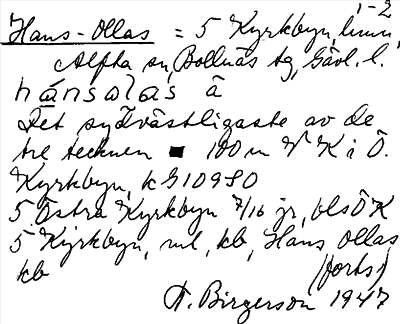 1-2
Hans-Ollas = 5 Kyrkbyn, linn,
Alfta sn, Bollnäs tg, Gävl. l.
hánsolas â
Det sydvästligaste av de
tre tecknen ■ 100 m V K i Ö.
Kyrkbyn, k G 109 SO
5 Östra Kyrkbyn 7/16 jr, bls Ö K
5 Kyrkbyn, ml, kb, Hans Ollas
kb (forts)
A. Birgerson 1947